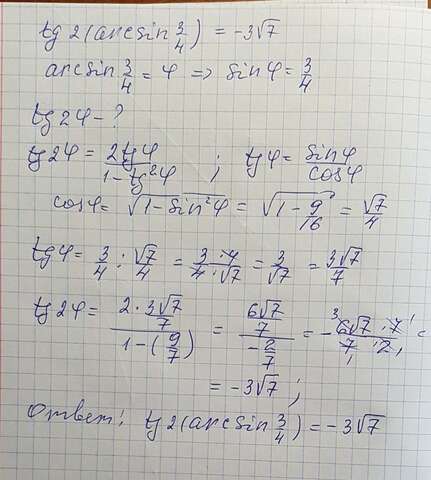 tg 2(arcsin 3/4) = -3√7
arcsin 3/4 = φ => sin φ = 3/4
tg 2φ - ?
tg 2φ = 2tgφ / 1 - tg²φ ; tgφ = sinφ / cosφ
cosφ = √1 - sin²φ = √1 - 9/16 = √7/4
tgφ = 3/4 : √7/4 = 3·4 / 4·√7 = 3/√7 = 3√7/7
tg 2φ = 2·3√7/7 / 1-(9/7) = 6√7/7 / -2/7 = - ³6√7·7¹ / 7₁·2₁ =
= -3√7 ;
Ответ: tg 2(arcsin 3/4) = -3√7